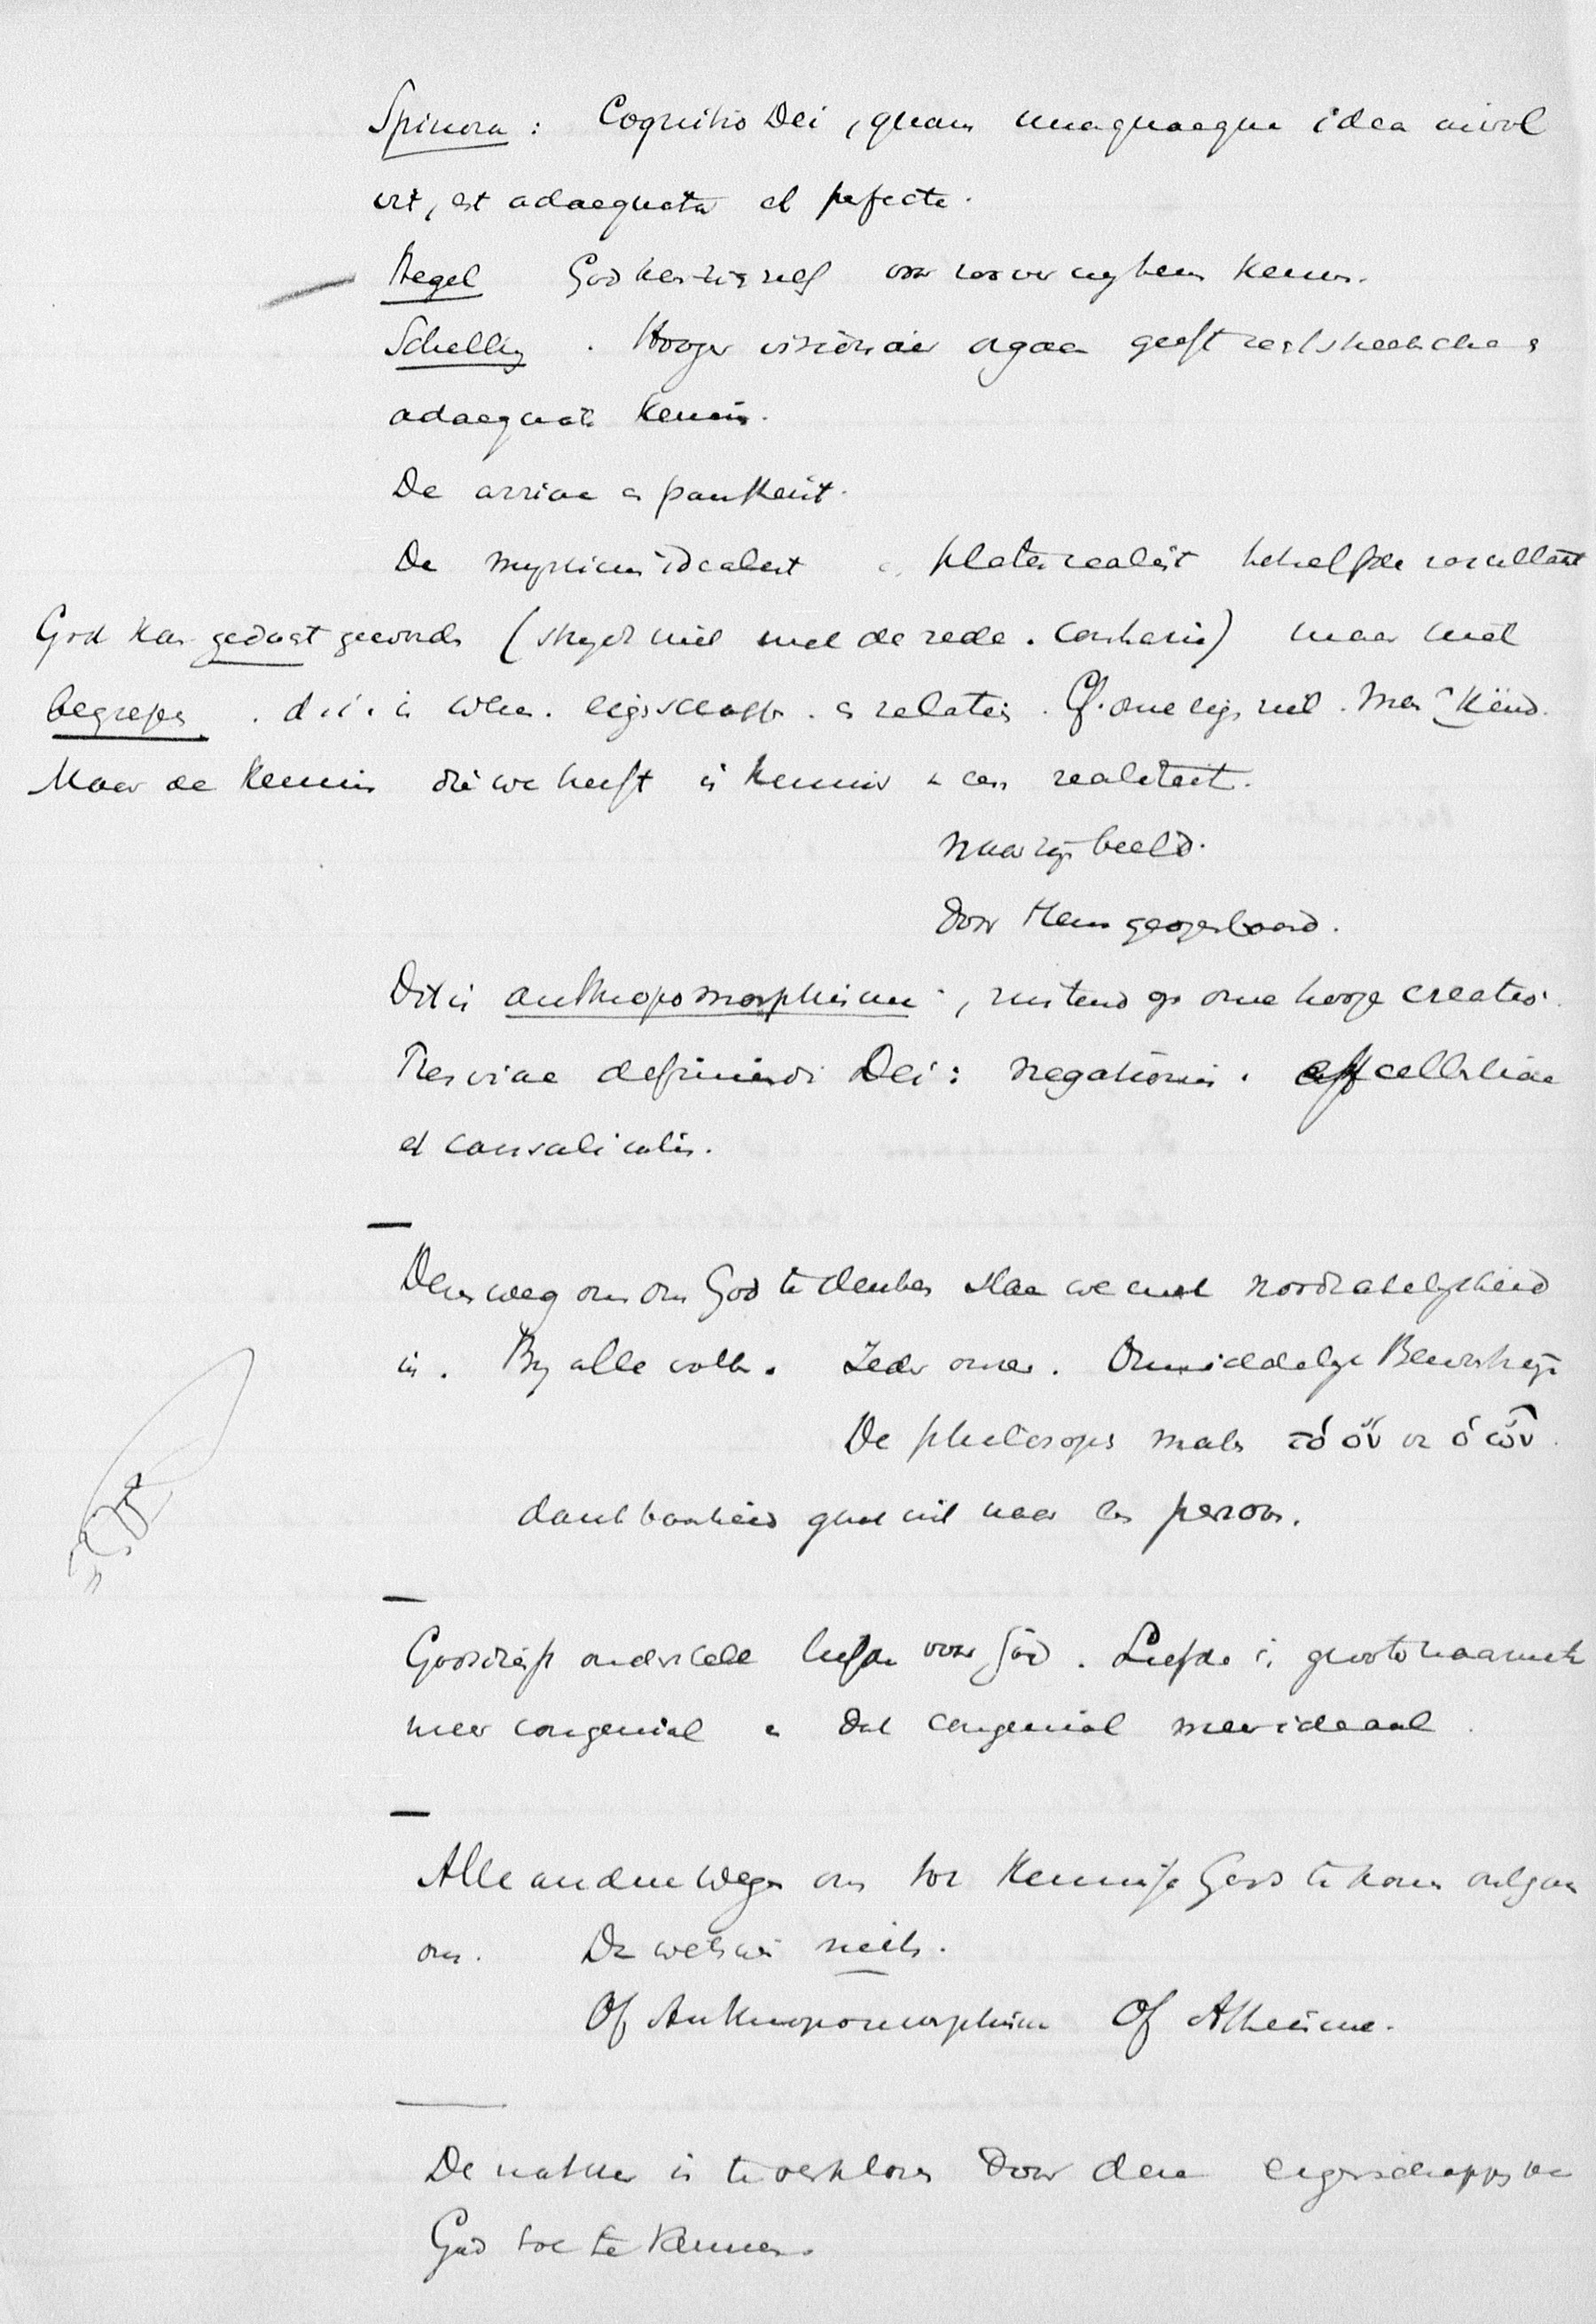 Spinoza : Cognitio Dei, quam unaquaeque idea invol
vit, est adaequata et perfecta.
Hegel God kent zich zelf voor zoover wy hem kennen.
Schelling . Hooger visionair orgaan geeft rechtstreeksche &
adaequate kennis.
De arriaan & pantheist.
De mysticus idealist & platte realist hetzelfde resultaat
God kan gedacht geworden (strydt niet met de rede. Contrarie) maar niet
begrepen . d.i. in wezen. eigenschappen. & relaties. Cf. onze eigen ziel. Men kind.
Maar de kennis die we heeft is kennis van een realiteit.
naar zyn beeld.
door Hem geopenbaard.
Dit is anthropomorphisme, rustend op onze hooge creatie.
Tres viae definiendi Dei : negationis. excellentiae
et causalitatis.
Dezen weg om om God te denken slaan we met noodzakelykheid
in. By alle volken. Ieder onzer. Onmiddelyk Bewustzijn
De philosopen maken τό ὄν v ὁ ὤν.
dankbaarheid gaat uit naar een persoon.
Godsdienst onderstelt liefde voor God. Liefde is grooter naarmate
meer congeniaal & dat congeniaal meer ideaal.
Alle andere wegen om tot kennisse Gods te komen ontgaan
ons. Dan weten wij niets.
Of Anthropomorphisme Of Atheisme.
De natuur is te verklaren door deze eigenschappen van
God toe te kennen.